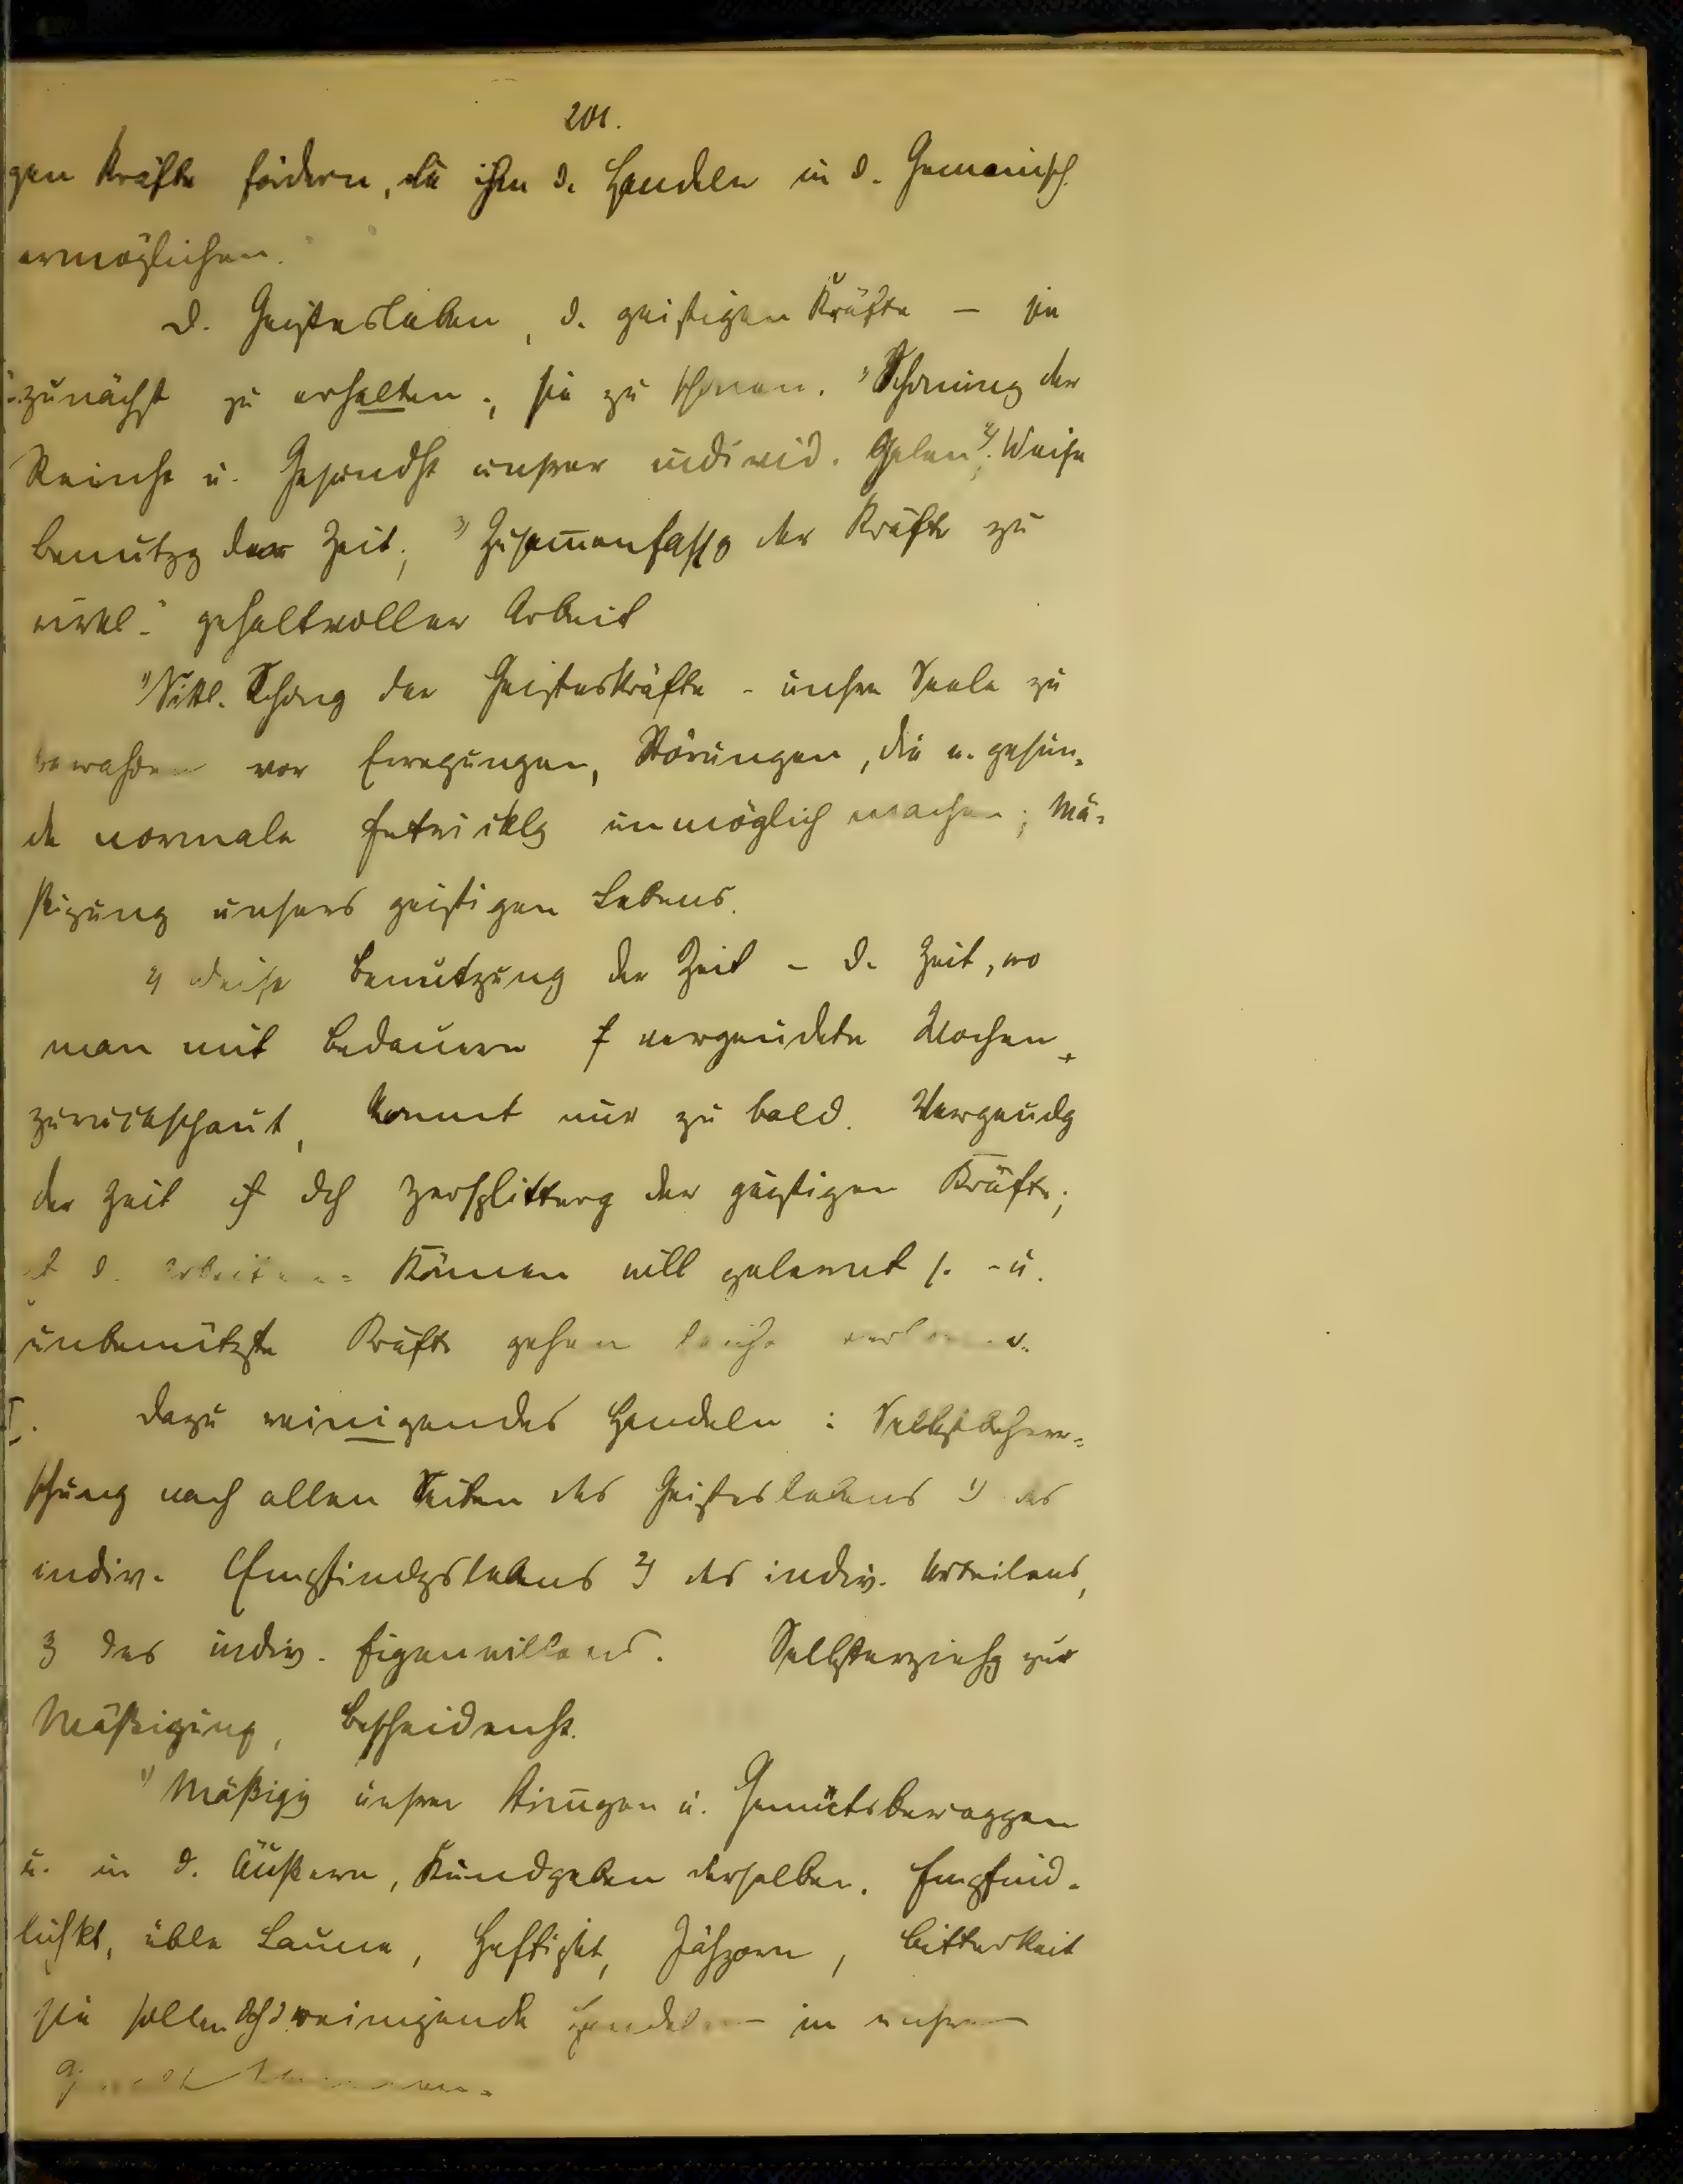 201.
gen Kräfte fördern, die ihm d. Handeln in d. Gemeinsch.
ermöglichen.
D. Geistesleben, d. geistigen Kräfte – sie
zunächst zu erhalten, sie zu schonen. 1) Schonung der
Reinht u. Gesundht unsrer individ. 2) Weise
Benutzg der Zeit, 3) Zusammenfassg der Kräfte zu
gehaltvoller Arbeit
1) Sittl. Schong der Geisteskräfte – unsre Seele zu
bewahren vor Erregungen, Störungen, die u. gesun-
de normale Entwicklg unmöglich machen; Mä-
ßigung unsers geistigen Lebens.
2) Weise Benutzung der Zeit – d. Zeit, wo
man mit Bedauern vergeudete Wochen
zurückschaut, kommt nur zu bald. Vergeudg
der Zeit ist dch Zersplitterg der geistigen Kräfte;
d. Arbeiten- Können will gelernt s. – u.
unbenützte Kräfte gehen leicht verloren.
Dazu reinigendes Handeln: Selbstbeherr-
schung nach allen Seiten des Geisteslebens 1) des
indiv. Empfindgslebens 2) des indiv. Urteilens,
3 des indiv. Eigenwillens. Selbsterziehg zur
Mäßigung, Bescheidenht.
1) Mäßigg unsrer Stimmgen u. Gemütsbeweggen
u. in d. Äußern, Kundgeben derselben. Empfind-
lichkt, üble Laune, Heftigkt, Jähzorn, Bitterkeit
sie sollen dch d. reinigende Handeln – in unsrer